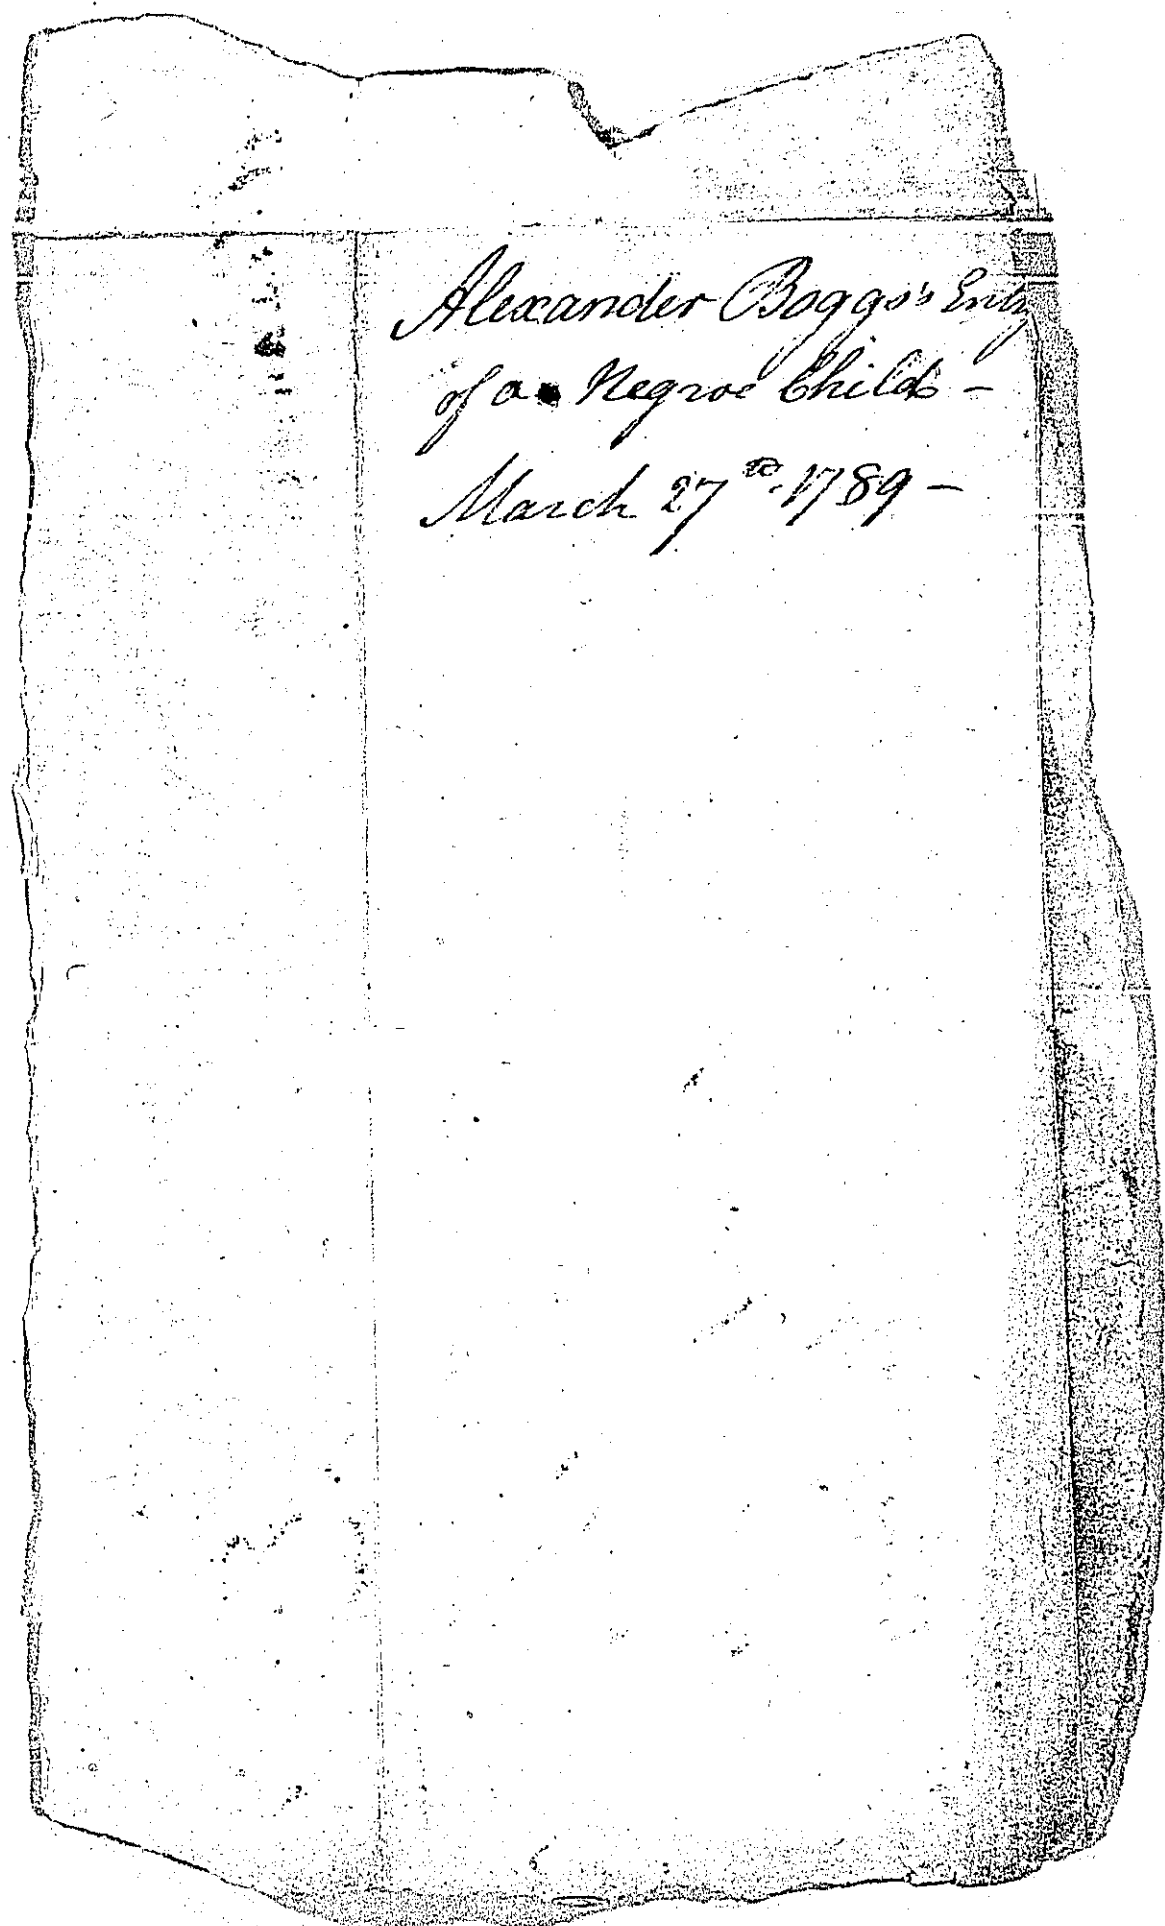 Alexander Boggs's Entry
of a Negroe Child -
March 27th. 1789 -